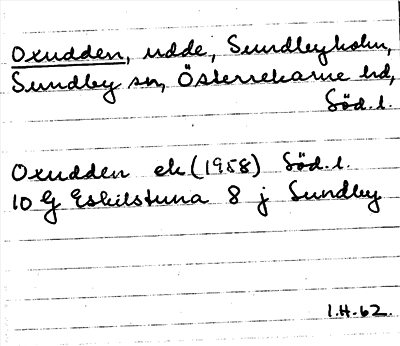 Oxudden, udde, Sundbyholm,
Sundby sn, Österrekarne hd,
Söd.l.
Oxudden ek (1958) Söd.l.
10 G Eskilstuna 8 j Sundby
I.H.62.